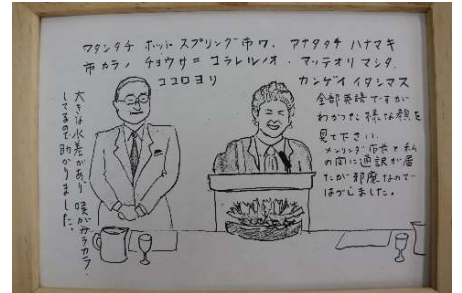 ワタシタチ ホットスプリング市ワ、アナタタチ ハナマキ
市カラノ チョウサニ コラレルノオ・マッテオリマシタ、
ココロヨリ カンゲイイタシマス
全部英語ですが
わかった様な顔を
見て下さい、
メンリング市長と私
の間に通訳が居
たが邪魔なので
はづしました。
大きな水差があり 喉がカラカラ、
してるので助かりました。